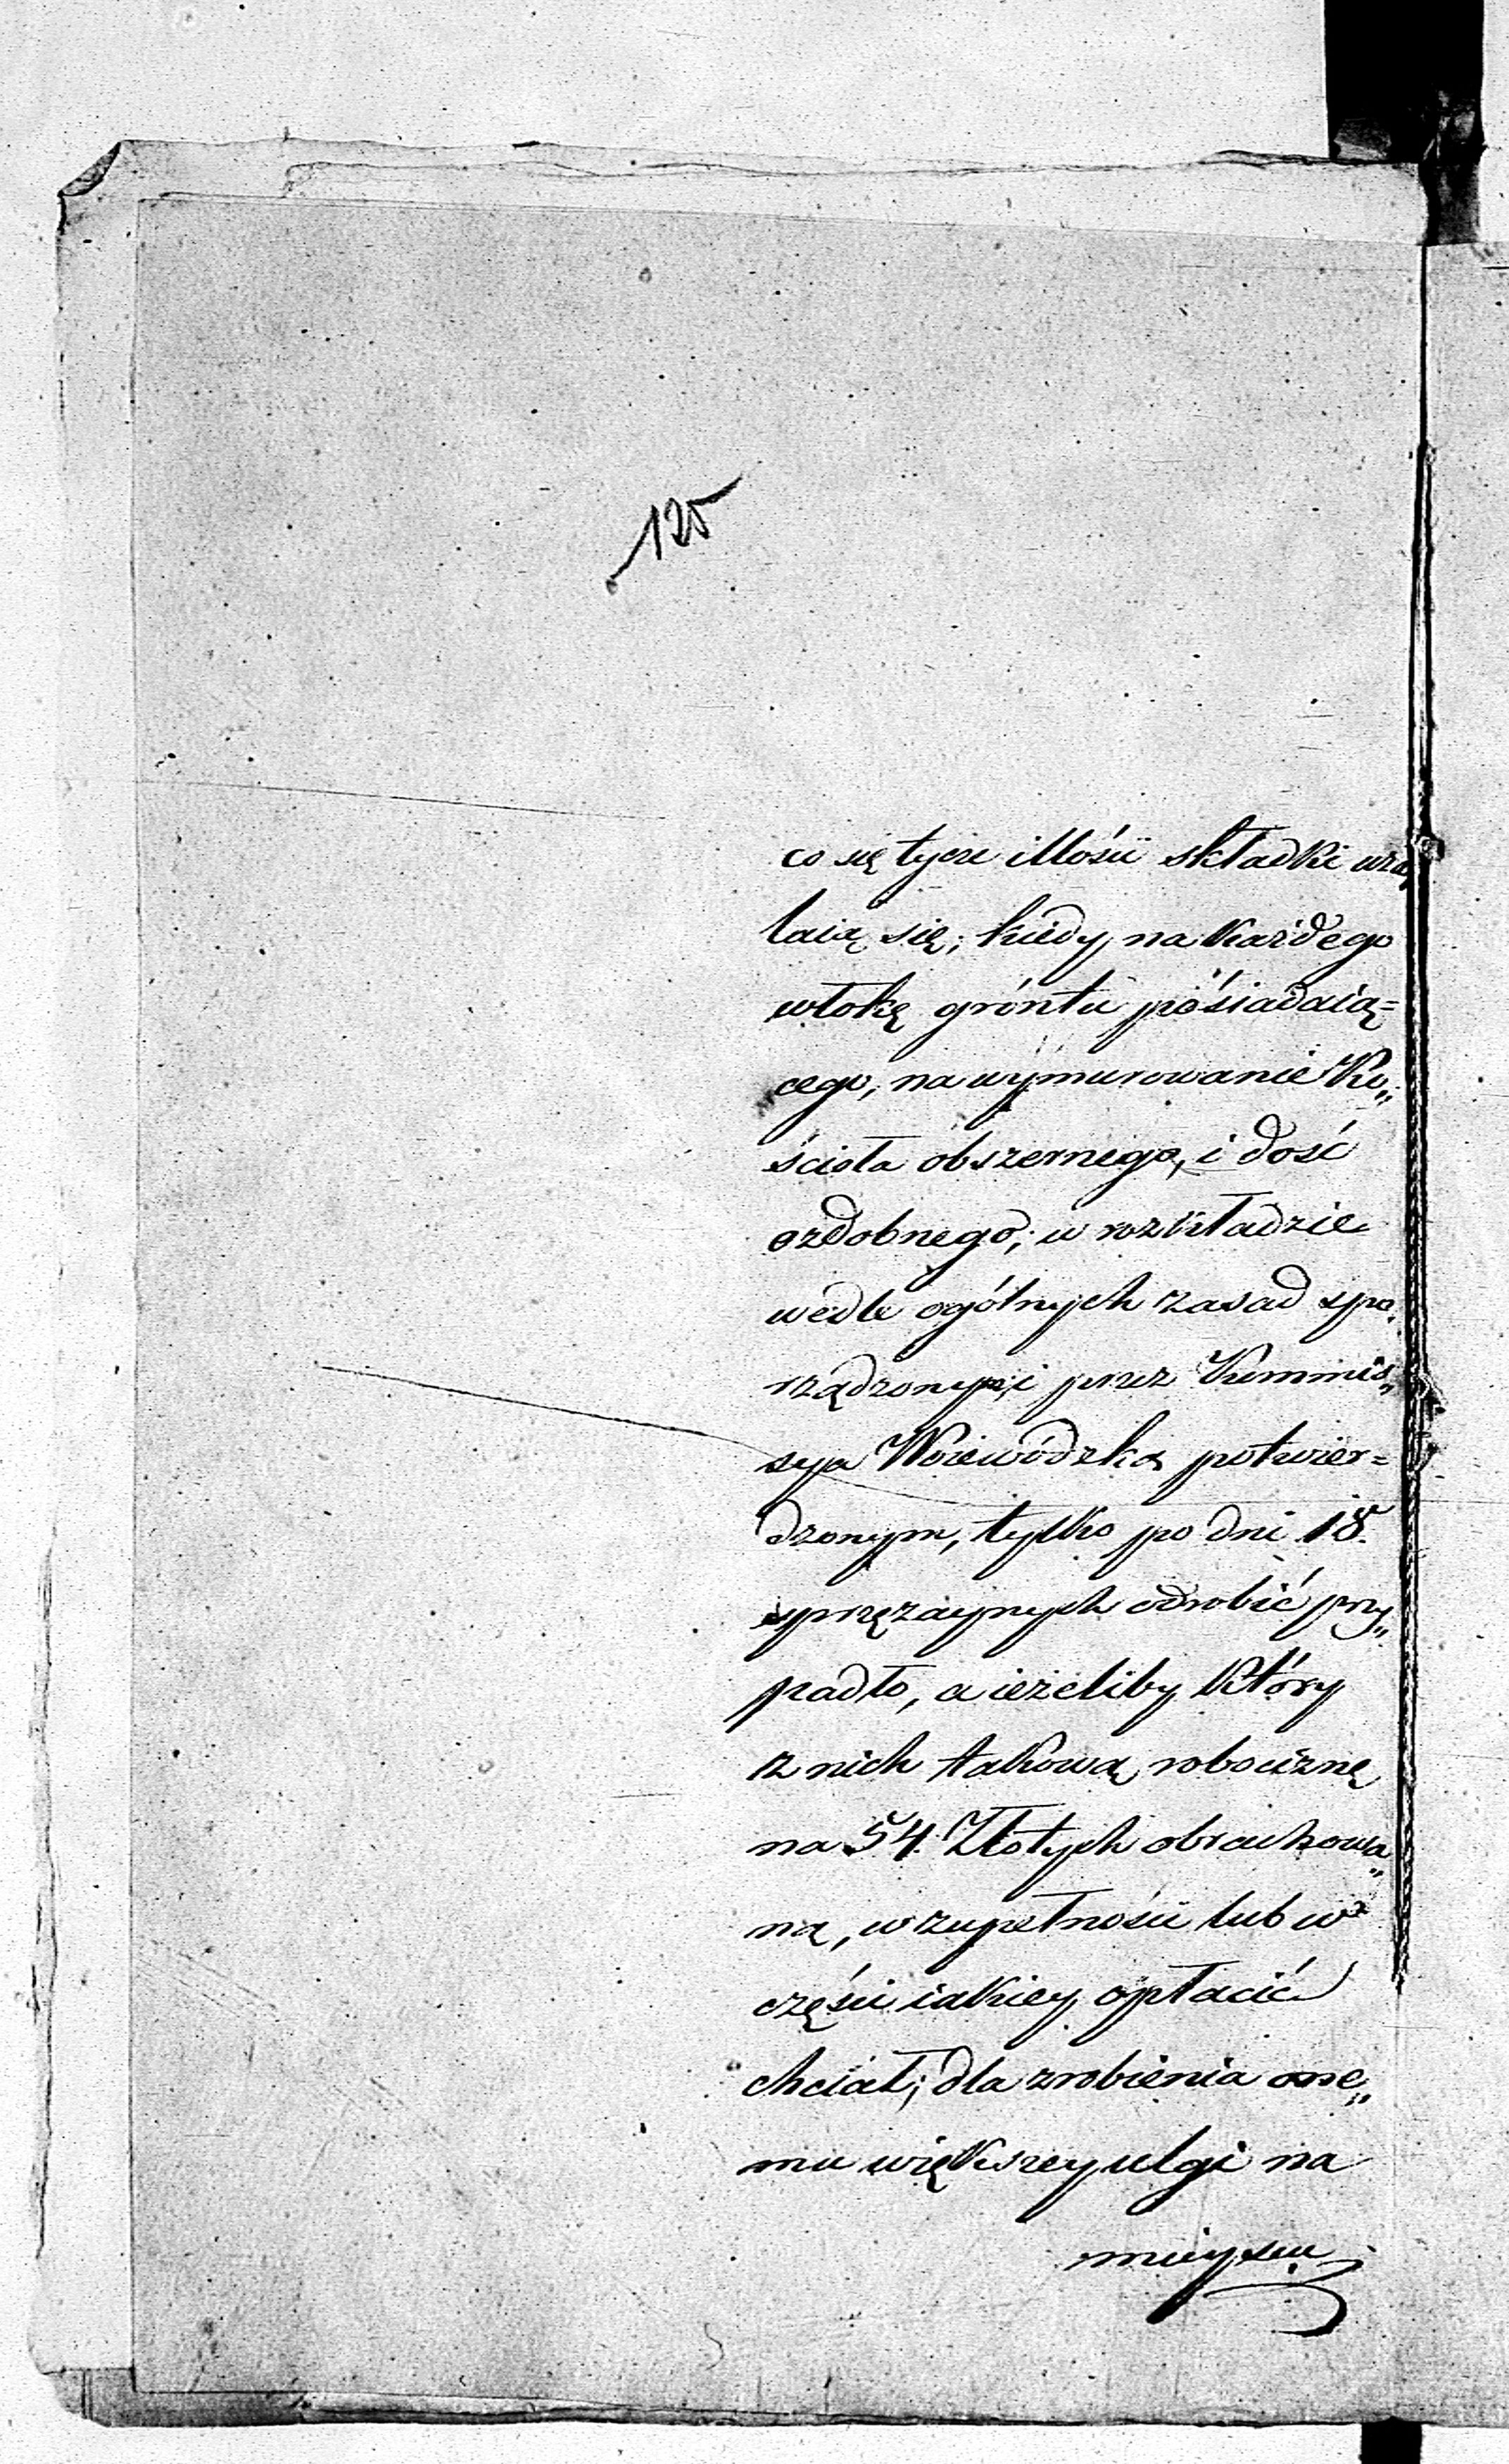 125
co się tycze illości składki uża
laią się; kiedy na każdego
włokę gróntu pośiadaią=
cego, na wymurowanie Ko„
ścioła obszernego, i dość
ozdobnego; w rozkładzie
wedle ogólnych zasad spo„
rządzonym i przez Kommis„
syą Woiewódzką potwier=
dzonym, tylko po dni 18.
sprzężaynych odrobić przy„
padło, a ieżeliby który
z nich takową robociznę
na 54. Złotych obrachowa„
ną, w zupełności lub w
części iakiey opłacić
chciał; dla zrobienia one„
mu większey ulgi na
mieyscu